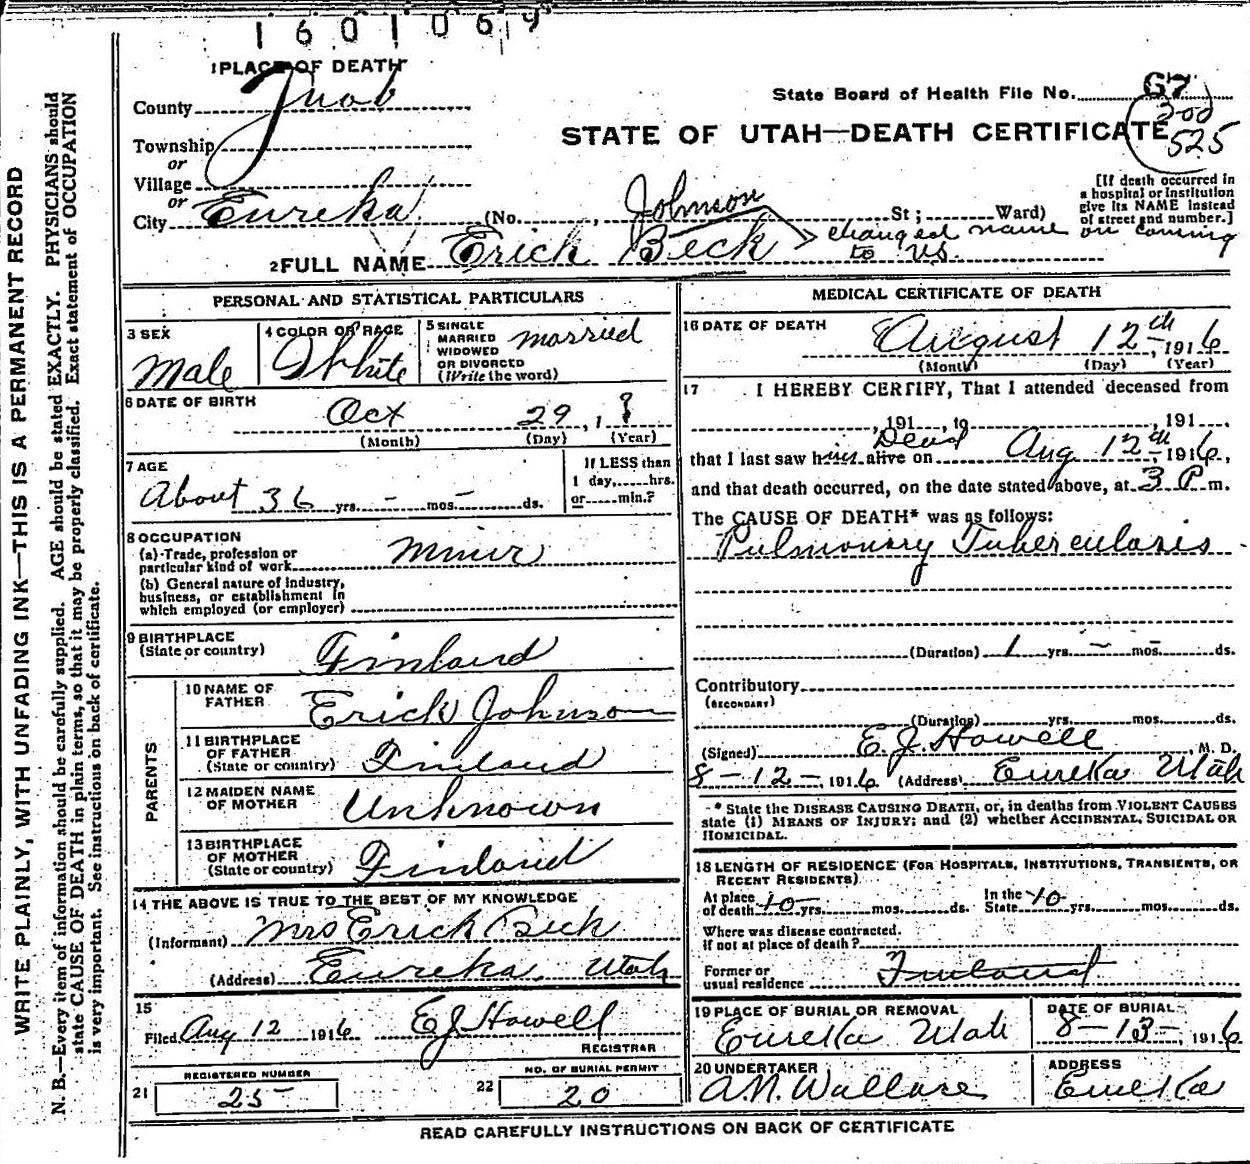 1601069
1 PLACE OF DEATH
County Juab
State Board of Health File No. 67
200
525
STATE OF UTAH—DEATH CERTIFICATE
Township
or
Village
or
City Eureka (No. , St; Ward)
[If death occurred in a hospital or institution give its NAME instead of street and number.]
Johnson
2 FULL NAME Erick Beck > changed name on coming to US.
PERSONAL AND STATISTICAL PARTICULARS
3 SEX Male
4 COLOR OR RACE White
5 SINGLE MARRIED WIDOWED OR DIVORCED (Write the word) married
6 DATE OF BIRTH Oct 29, 1 ?
(Month) (Day) (Year)
7 AGE About 36 yrs. - mos. - ds.
If LESS than 1 day, hrs. or min.?
8 OCCUPATION
(a) Trade, profession or particular kind of work miner
(b) General nature of industry, business, or establishment in which employed (or employer)
9 BIRTHPLACE (State or country) Finland
PARENTS
10 NAME OF FATHER Erick Johnson
11 BIRTHPLACE OF FATHER (State or country) Finland
12 MAIDEN NAME OF MOTHER Unknown
13 BIRTHPLACE OF MOTHER (State or country) Finland
14 THE ABOVE IS TRUE TO THE BEST OF MY KNOWLEDGE
(Informant) Mrs Erick Beck
(Address) Eureka Utah
15
Filed Aug 12 1916 E J Howell
REGISTRAR
21 REGISTERED NUMBER 25
22 NO. OF BURIAL PERMIT 20
MEDICAL CERTIFICATE OF DEATH
16 DATE OF DEATH August 12th, 1916
(Month) (Day) (Year)
17 I HEREBY CERTIFY, That I attended deceased from
, 191 , to , 191 ,
that I last saw him alive on Dead Aug 12th, 1916,
and that death occurred, on the date stated above, at 3 P m.
The CAUSE OF DEATH* was as follows:
Pulmonary Tuberculosis
(Duration) 1 yrs. - mos. ds.
Contributory
(SECONDARY)
(Duration) yrs. mos. ds.
(Signed) E. J. Howell, M. D.
8-12-, 1916 (Address) Eureka Utah
* State the DISEASE CAUSING DEATH, or, in deaths from VIOLENT CAUSES
state (1) MEANS OF INJURY; and (2) whether ACCIDENTAL, SUICIDAL OR
HOMICIDAL.
18 LENGTH OF RESIDENCE (FOR HOSPITALS, INSTITUTIONS, TRANSIENTS, OR
RECENT RESIDENTS)
At place of death 10 yrs. mos. ds. In the State 10 yrs. mos. ds.
Where was disease contracted.
if not at place of death?
Former or usual residence Finland
19 PLACE OF BURIAL OR REMOVAL Eureka Utah
DATE OF BURIAL 8-13-, 1916
20 UNDERTAKER A. N. Wallace
ADDRESS Eureka
READ CAREFULLY INSTRUCTIONS ON BACK OF CERTIFICATE
WRITE PLAINLY, WITH UNFADING INK—THIS IS A PERMANENT RECORD
N. B.—Every item of information should be carefully supplied. AGE should be stated EXACTLY. PHYSICIANS should
state CAUSE OF DEATH in plain terms, so that it may be properly classified. Exact statement of OCCUPATION
is very important. See instructions on back of certificate.